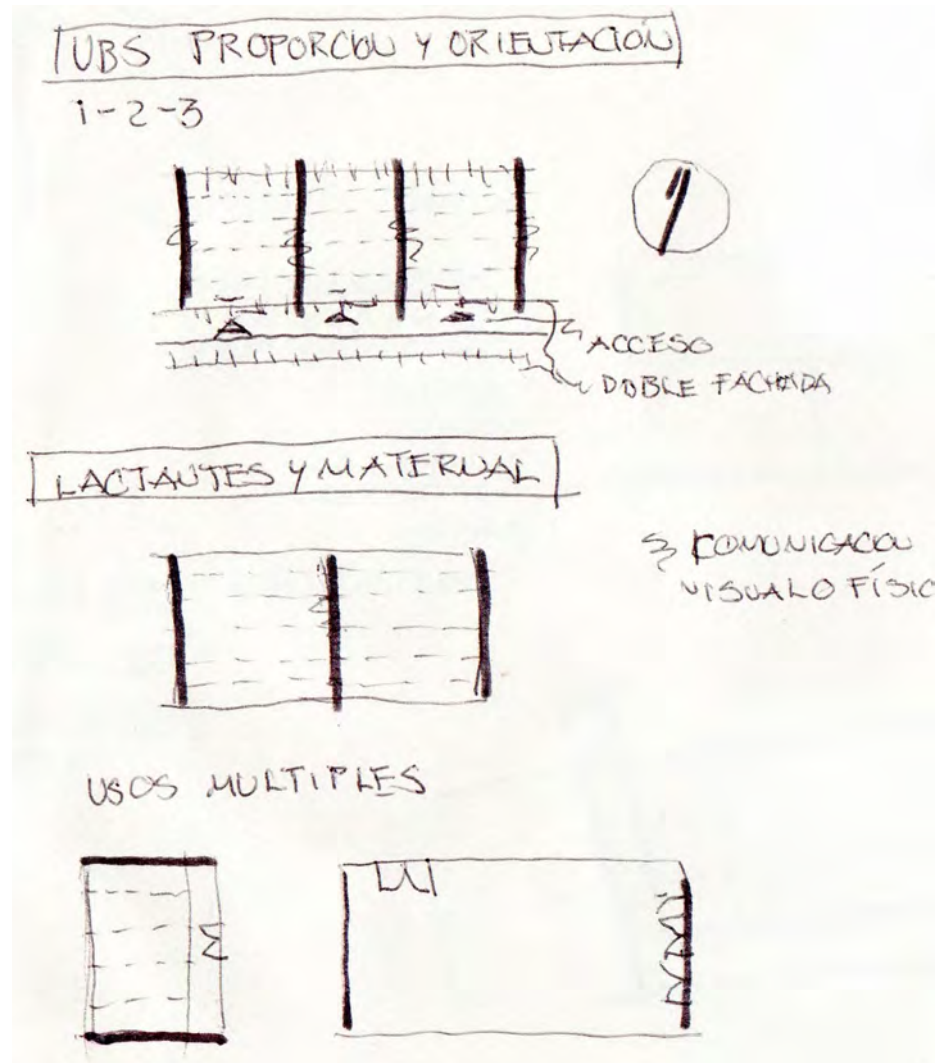 UBS PROPORCION Y ORIENTACIÓN
1-2-3
ACCESO
DOBLE FACHADA
LACTANTES Y MATERNAL
COMUNICACION
VISUAL O FÍSIC
USOS MULTIPLES